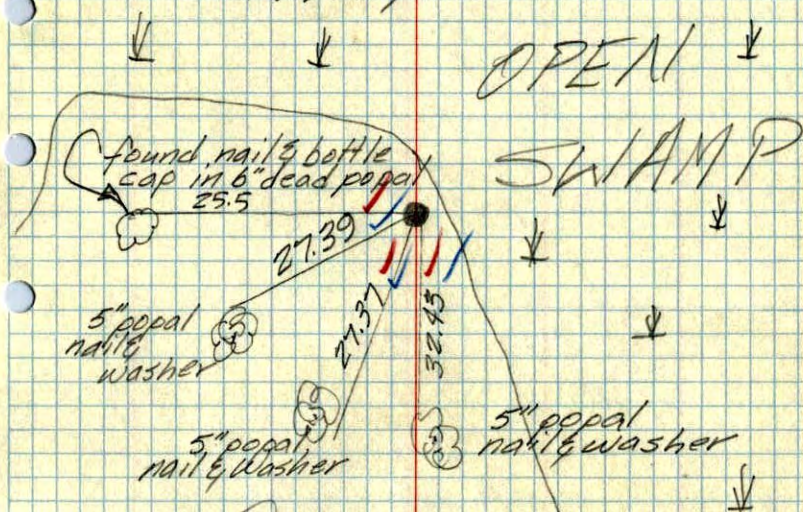 OPEN
SWAMP
found nail & bottle
cap in 6" dead popal
25.5
27.39
5" popal
nail &
washer
27.37
32.45
5" popal
nail & washer
5" popal
nail & washer